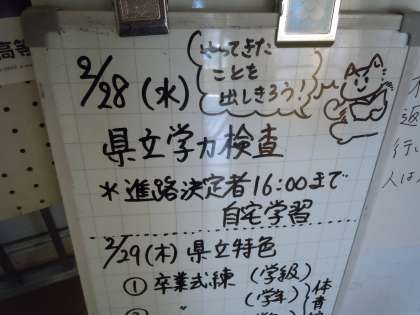 2/28(水)
やってきた
ことを
出しきろう!
県立学力検査
*進路決定者16:00まで
自宅学習
2/29(木)県立特色
①卒業式練(学級)
〃(学年)
体育
高等